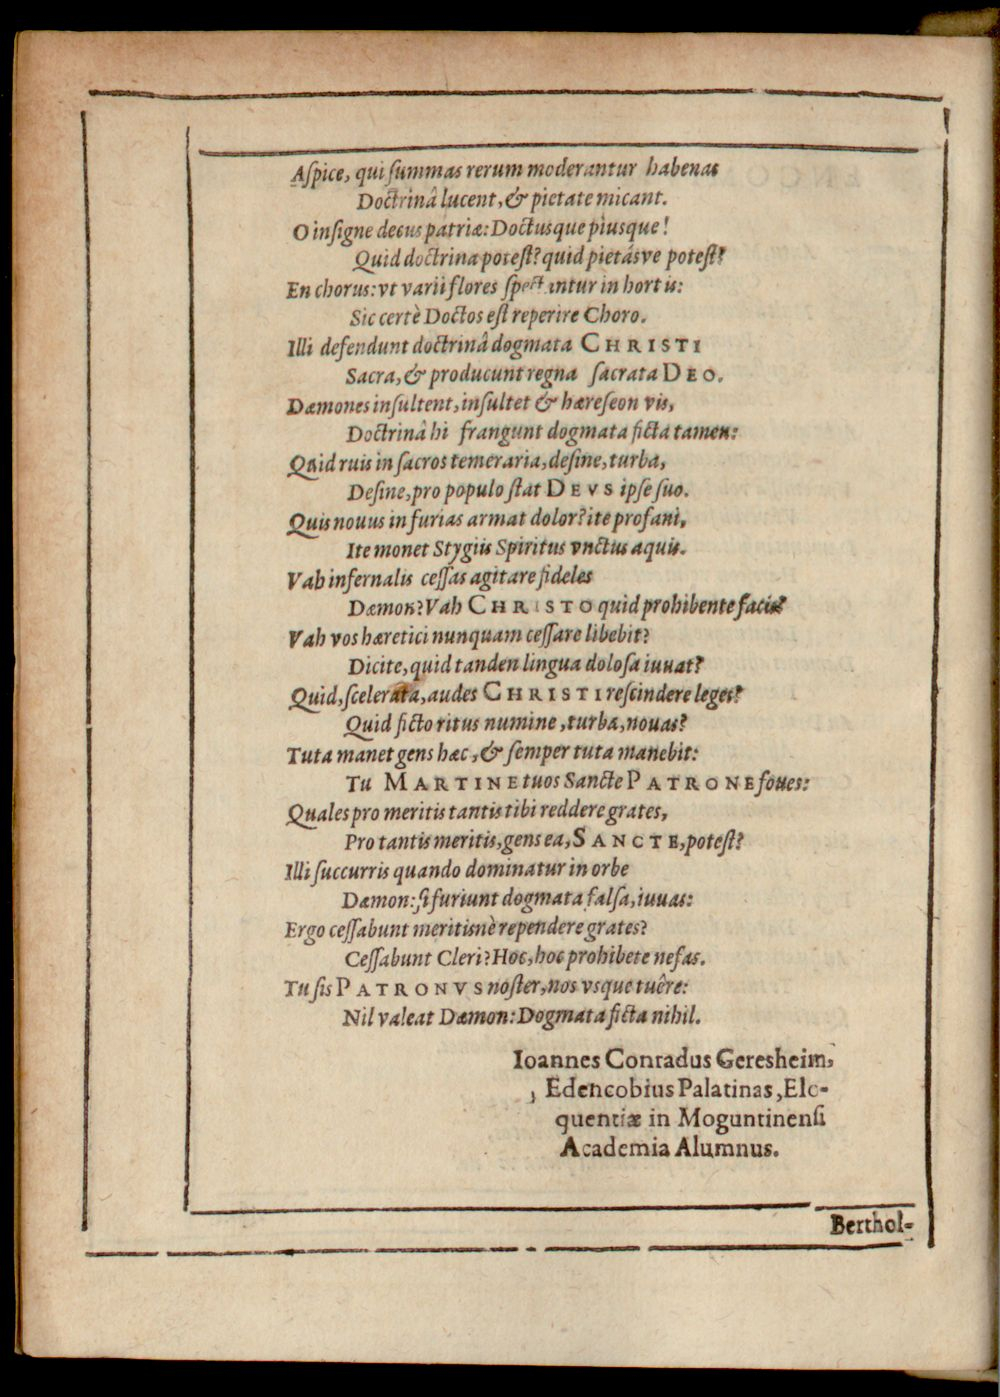 Aſpice, qui ſummas rerum moderantur habenas
Doctrinâ lucent, & pietate micant.
O inſigne decus patriæ: Doctusque piusque!
Quid doctrina poteſt? quid pietásve poteſt?
En chorus: vt varii flores ſpectantur in hortis:
Sic certè Doctos eſt reperire Choro.
Illi defendunt doctrinâ dogmata CHRISTI
Sacra, & producunt regna ſacrata DEO.
Dæmones inſultent, inſultet & hæreſeon vis,
Doctrinâ hi frangunt dogmata ficta tamen:
Quid ruis in ſacros temeraria, deſine, turba,
Deſine, pro populo ſtat DEVS ipſe ſuo.
Quis nouus in furias armat dolor? ite profani,
Ite monet Stygiis Spiritus vnctus aquis.
Vah infernalis ceſſas agitare fideles
Dæmon? Vah CHRISTO quid prohibente facis?
Vah vos hæretici nunquam ceſſare libebit?
Dicite, quid tanden lingua doloſa iuuat?
Quid, ſcelerata, audes CHRISTI reſcindere leges?
Quid ficto ritus numine, turba, nouas?
Tuta manet gens hæc, & ſemper tuta manebit:
Tu MARTINE tuos Sancte PATRONE foues:
Quales pro meritis tantis tibi reddere grates,
Pro tantis meritis, gens ea, SANCTE, poteſt?
Illi ſuccurris quando dominatur in orbe
Dæmon: ſi furiunt dogmata falſa, iuuas:
Ergo ceſſabunt meritisnè rependere grates?
Ceſſabunt Cleri? Hoc, hoc prohibete nefas.
Tu ſis PATRONVS noſter, nos vsque tuêre:
Nil valeat Dæmon: Dogmata ficta nihil.
Ioannes Conradus Geresheim,
Edencobius Palatinas, Elo-
quentiæ in Moguntinenſi
Academia Alumnus.
Berthol-